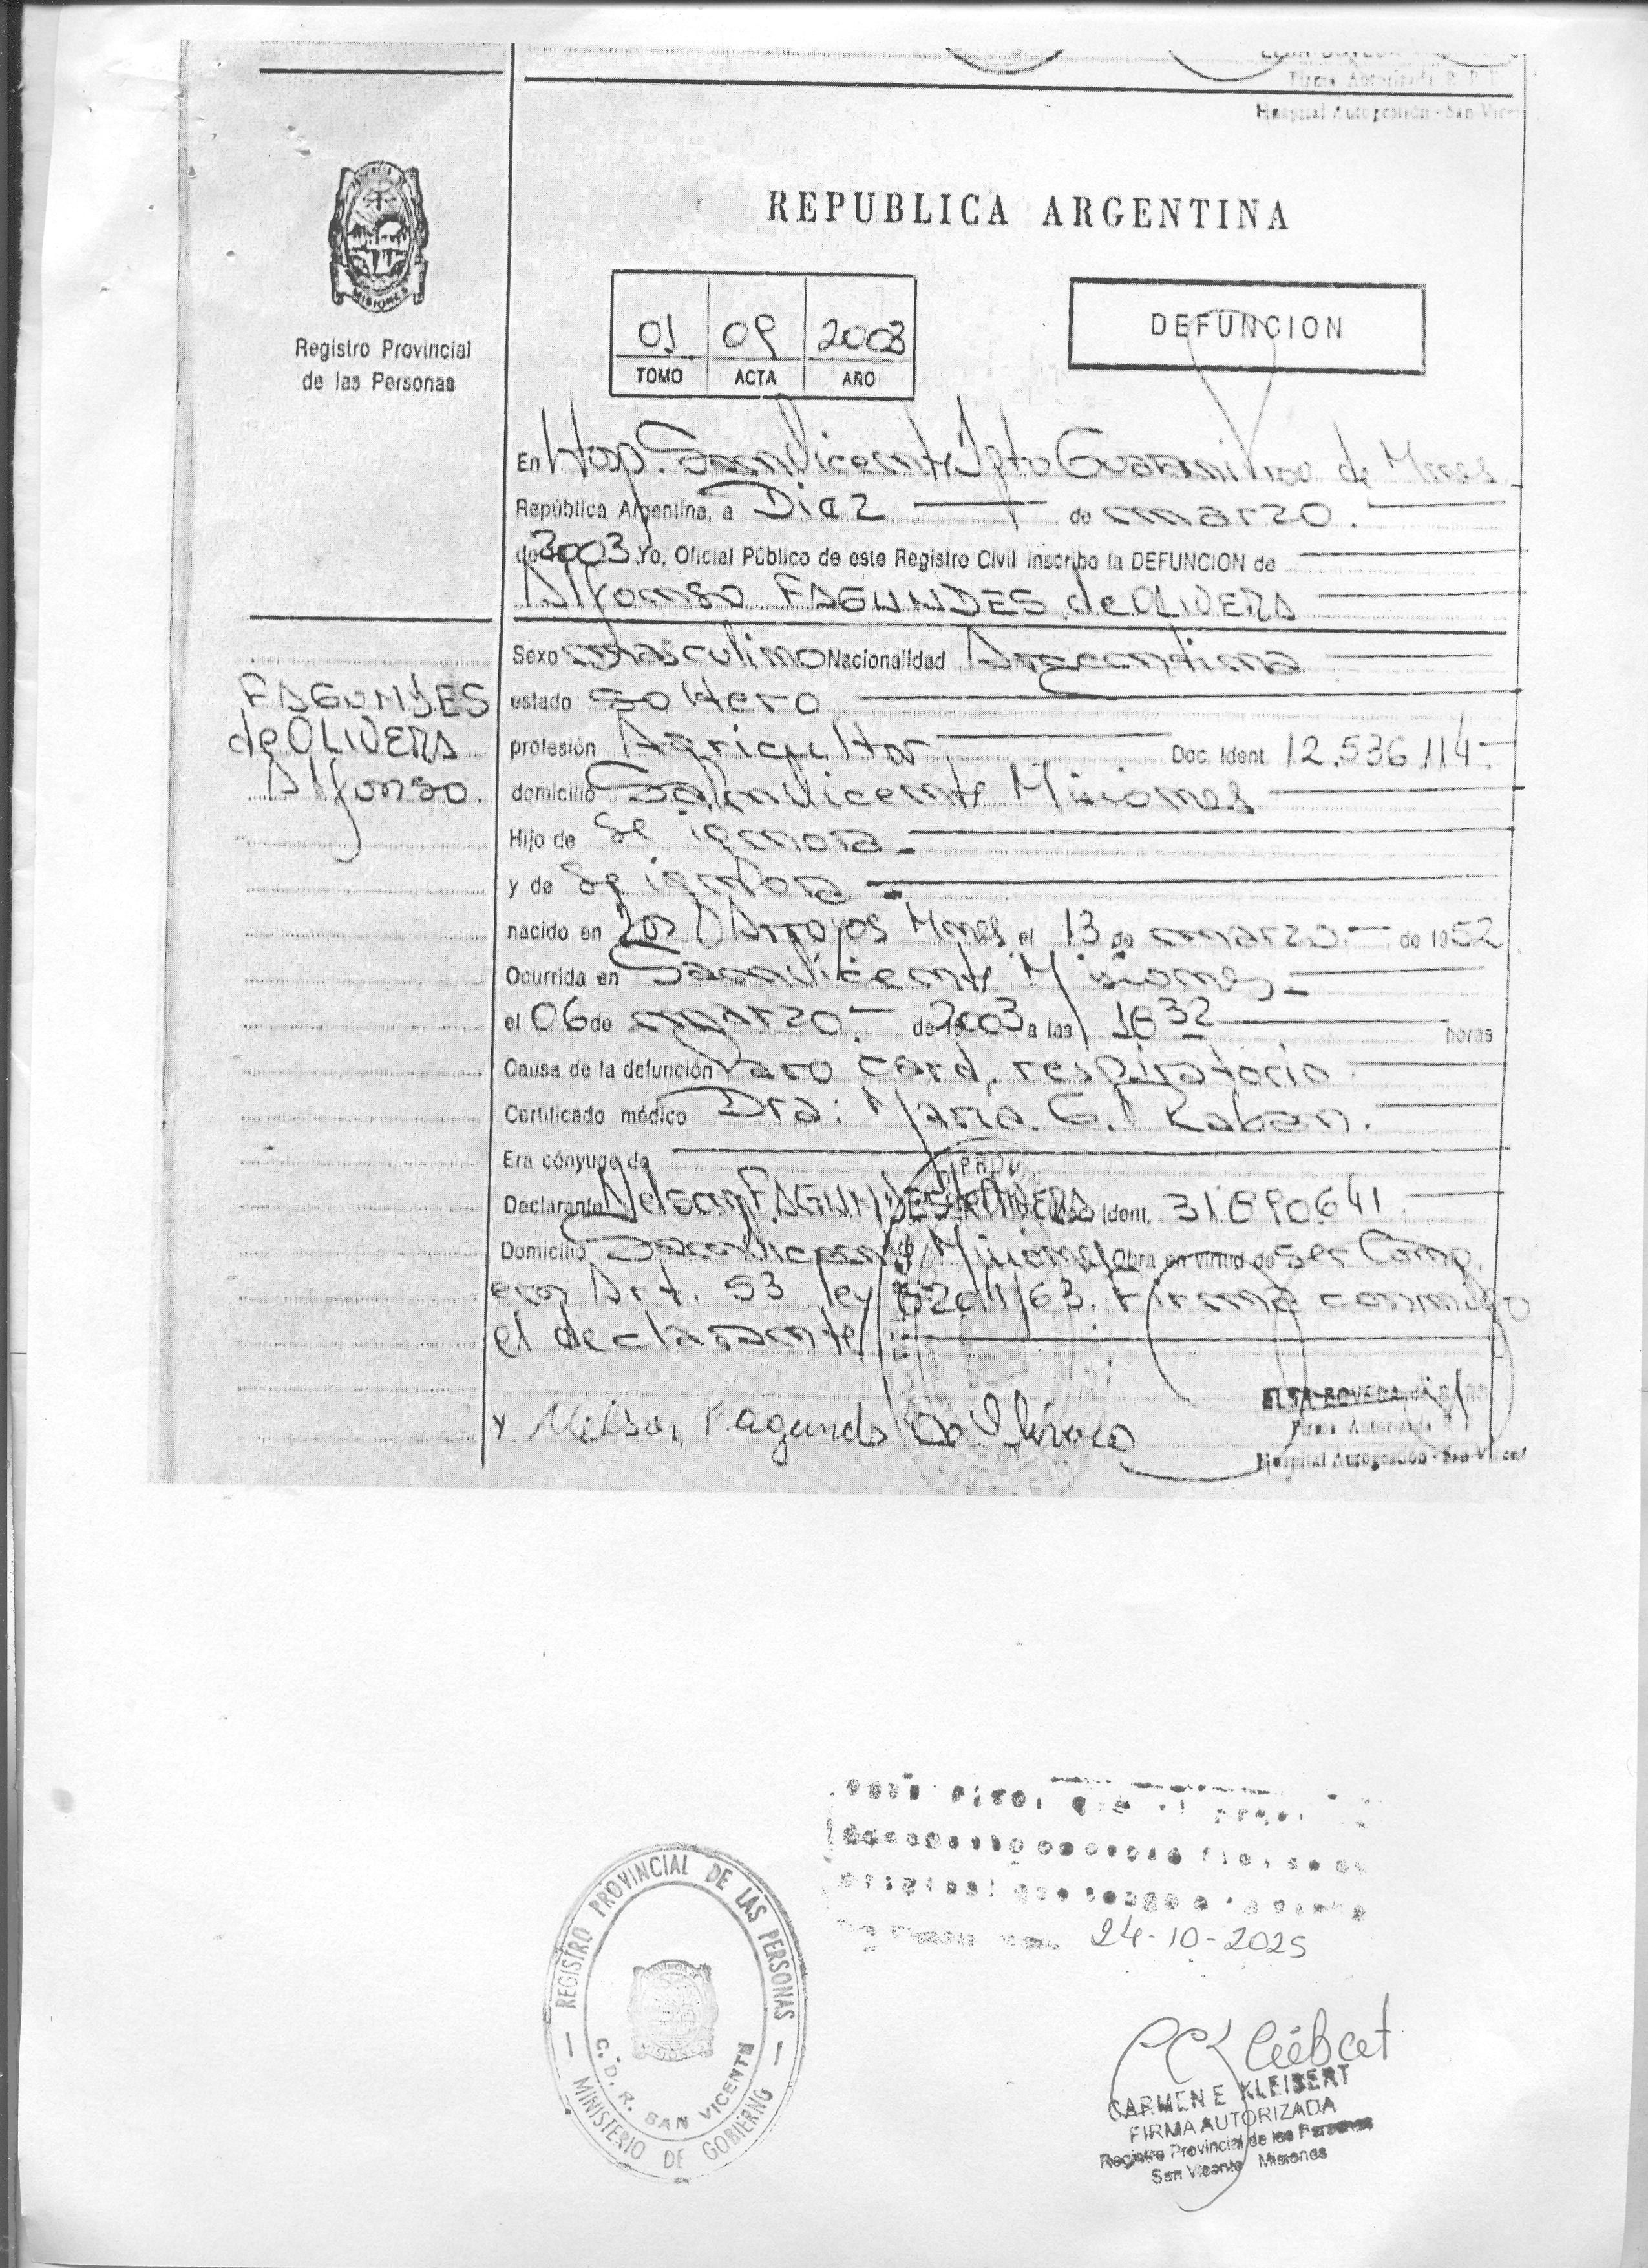 Firma Autorizada R. P.
Hospital Autogestión - San Vicen
MISIONES
Registro Provincial
de las Personas
REPUBLICA ARGENTINA
01 09 2003
TOMO ACTA AÑO
DEFUNCION
En Hosp. San Vicente Dpto Guaraní Prov de Mnes
República Argentina, a Diez de marzo.
de 2003 Yo, Oficial Público de este Registro Civil inscribo la DEFUNCION de
Alfonso FAGUNDES de OLIVERA
FAGUNDES
de OLIVERA
Alfonso.
Sexo masculino Nacionalidad Argentina
estado soltero
profesión Agricultor Doc. Ident. 12.536.114.-
domicilio San Vicente Misiones
Hijo de Se ignora -
y de Se ignora -
nacido en Dos Arroyos Mnes el 13 de marzo.- de 1952
Ocurrida en San Vicente Misiones -
el 06 de marzo.- de 2003 a las 16 32 horas
Causa de la defunción Paro card. respiratorio
Certificado médico Dra: María. G. Raban.
Era cónyuge de
Declarante Nelson FAGUNDES de OLIVERA Ident. 31.690.641
Domicilio San Vicente Misiones Obra en virtud de ser Comp.
en Art. 53 ley 8204/63. Firma conmigo
el declarante
x Nelson Fagundes
ELSA BOVEDA
Firma Autorizada
Hospital Autogestión - San Vicent
original que tengo a la vista
24-10-2025
REGISTRO PROVINCIAL DE LAS PERSONAS
C. D. R. SAN VICENTE
MINISTERIO DE GOBIERNO
CARMEN E KLEIBERT
FIRMA AUTORIZADA
Registro Provincial de las Personas
San Vicente Misiones